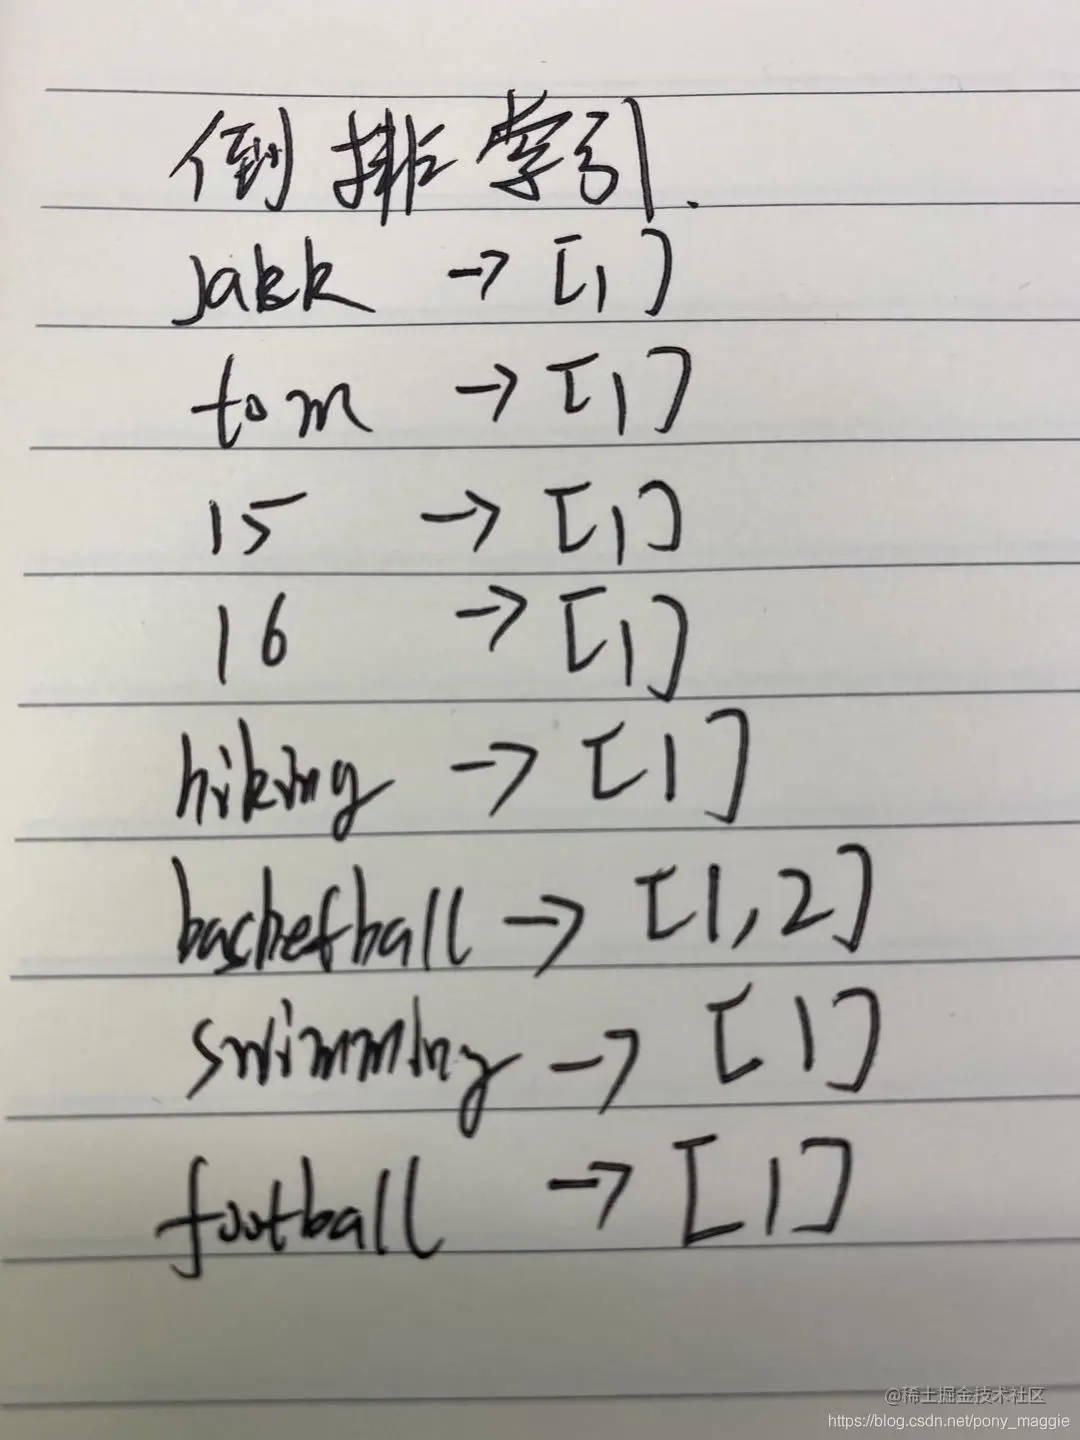 倒排索引.
jakk → [1]
tom → [1]
15 → [1]
16 → [1]
hiking → [1]
baschetball → [1,2]
swimming → [1]
football → [1]
@稀土掘金技术社区
https://blog.csdn.net/pony_maggie